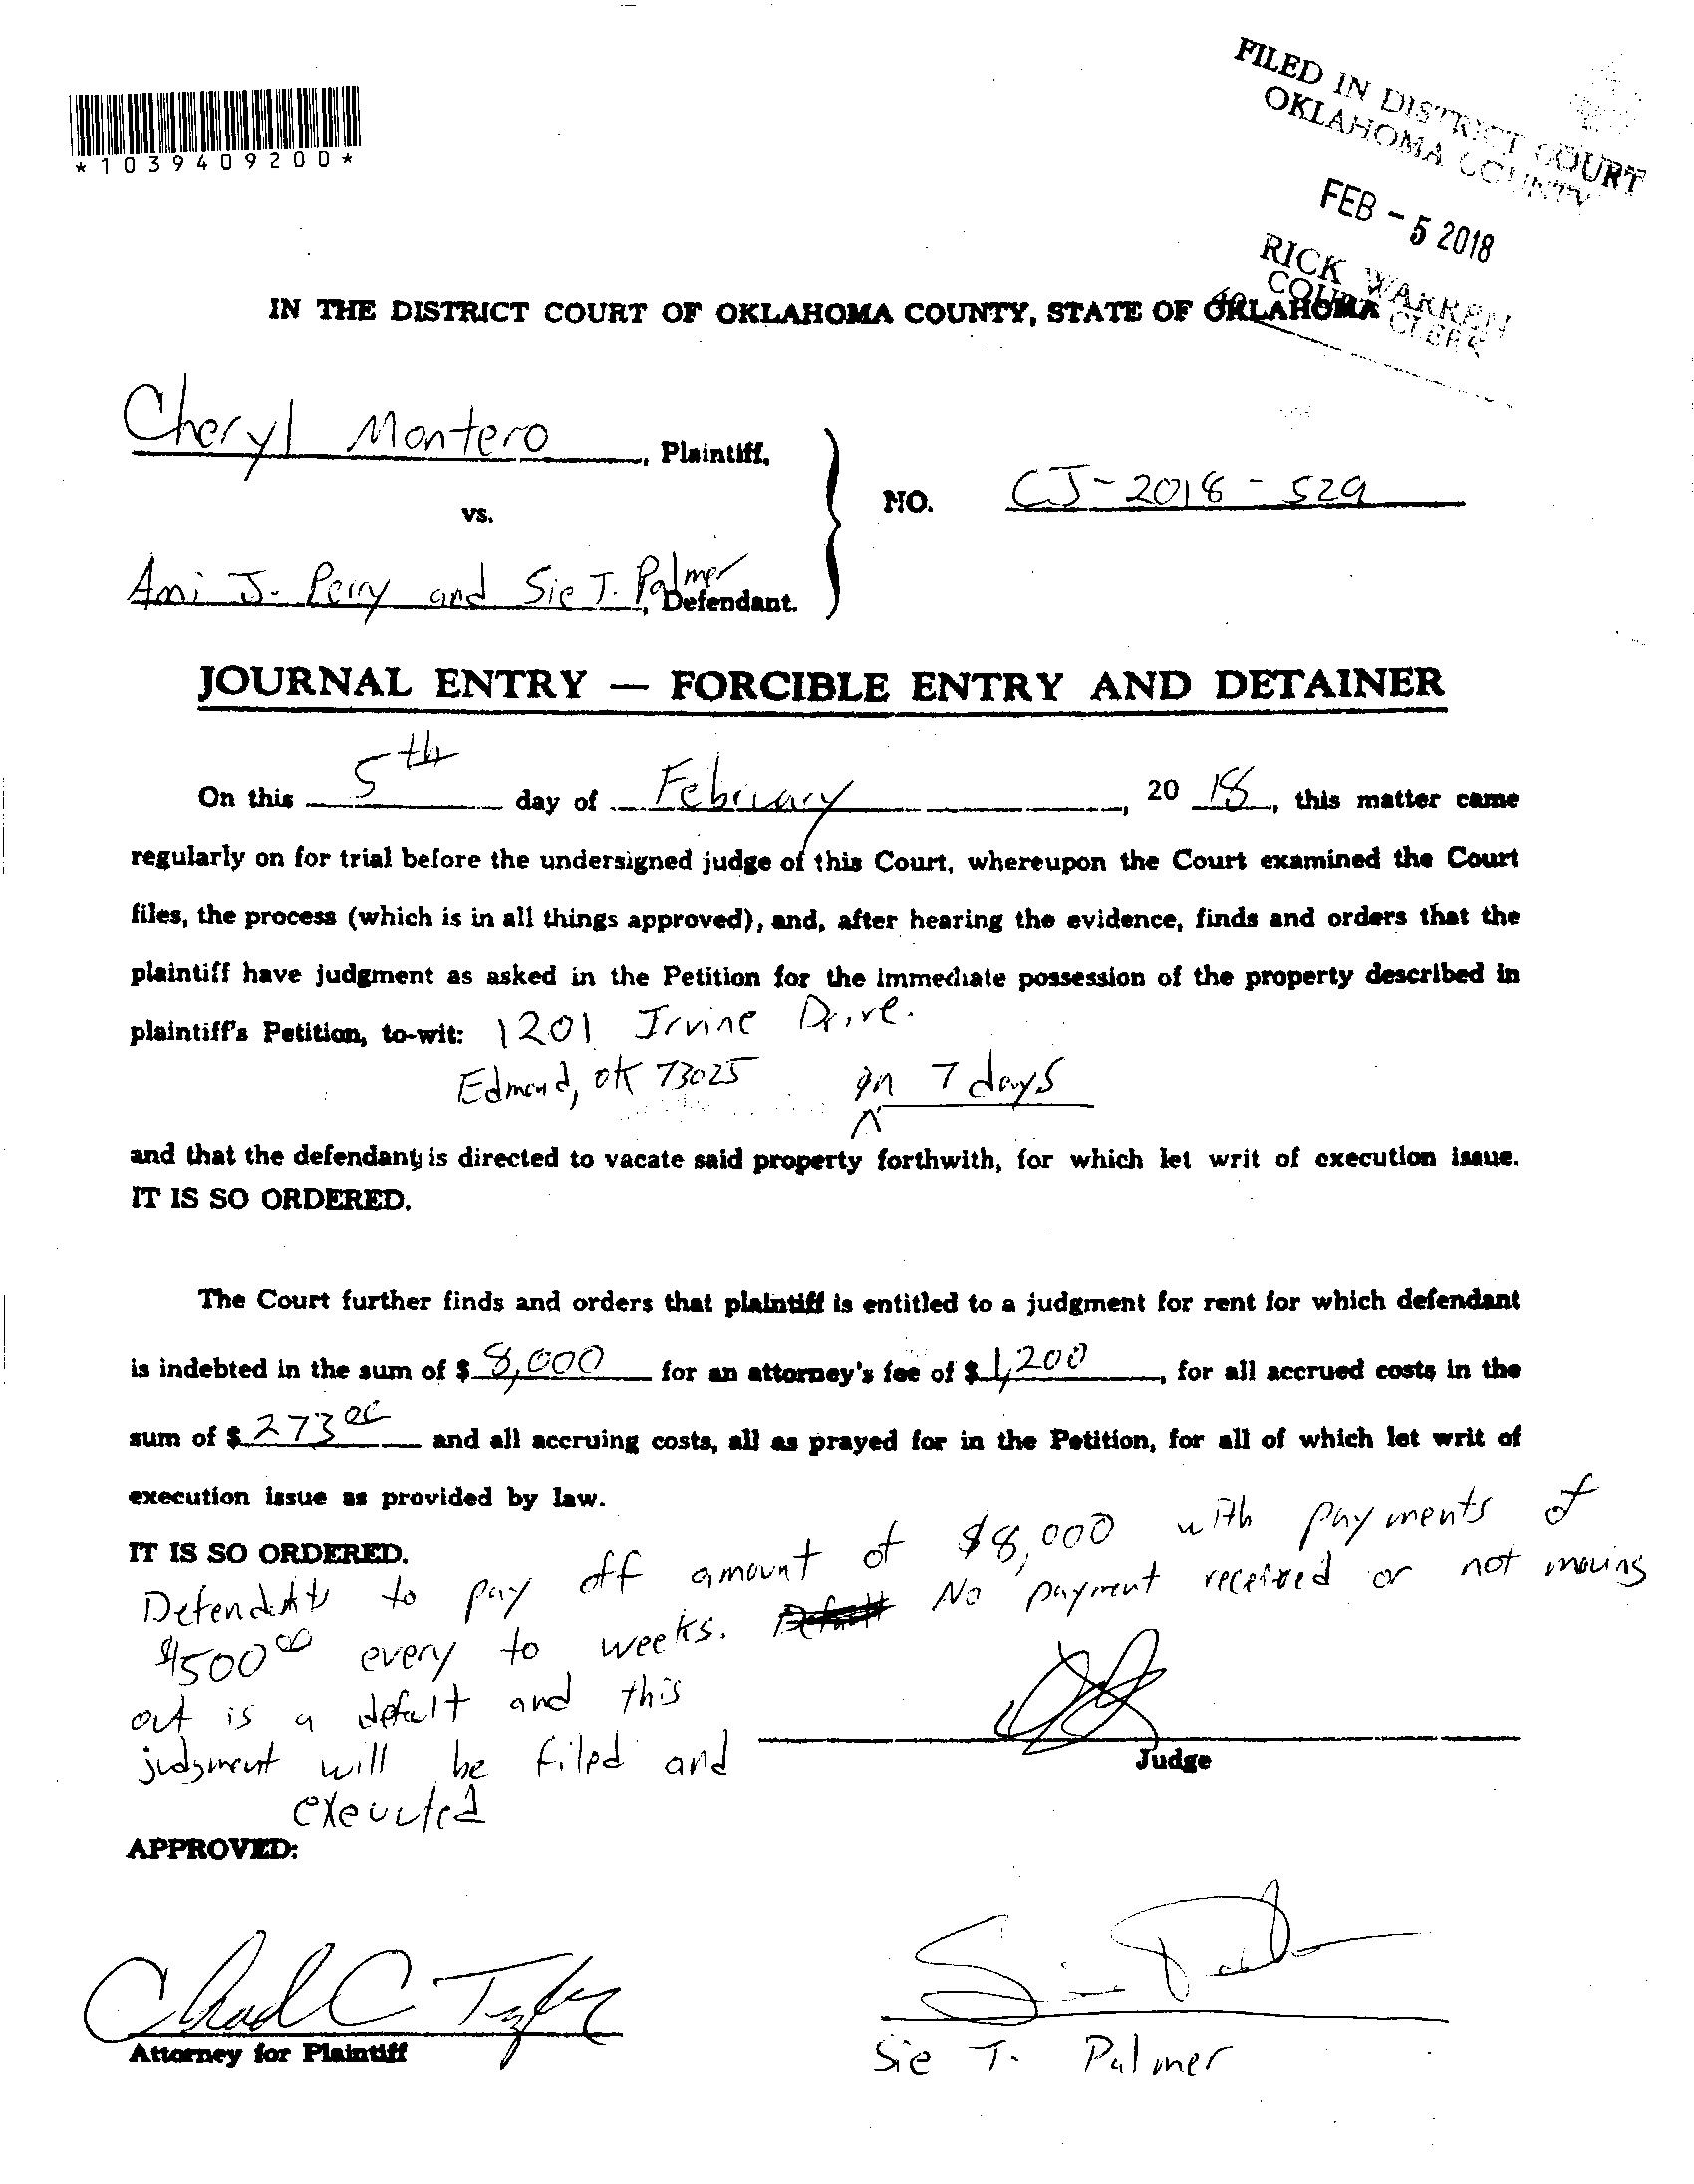 *1039409200*
FILED IN DISTRICT COURT
OKLAHOMA COUNTY
FEB - 5 2018
RICK WARREN
COURT CLERK
IN THE DISTRICT COURT OF OKLAHOMA COUNTY, STATE OF OKLAHOMA
Cheryl Montero, Plaintiff,
vs.
NO. CJ-2018-529
Ami J. Perry and Sie T. Palmer, Defendant.
JOURNAL ENTRY — FORCIBLE ENTRY AND DETAINER
On this 5th day of February, 20 18, this matter came
regularly on for trial before the undersigned judge of this Court, whereupon the Court examined the Court
files, the process (which is in all things approved), and, after hearing the evidence, finds and orders that the
plaintiff have judgment as asked in the Petition for the immediate possession of the property described in
plaintiff's Petition, to-wit: 1201 Irvine Drive.
Edmond, OK 73025 in 7 days
and that the defendants is directed to vacate said property forthwith, for which let writ of execution issue.
IT IS SO ORDERED.
The Court further finds and orders that plaintiff is entitled to a judgment for rent for which defendant
is indebted in the sum of $ 8,000 for an attorney's fee of $ 1,200, for all accrued costs in the
sum of $ 273 00 and all accruing costs, all as prayed for in the Petition, for all of which let writ of
execution issue as provided by law.
IT IS SO ORDERED.
Defendants to pay off amount of $8,000 with payments of
$500 00 every to weeks. No payment received or not moving
out is a default and this
judgment will be filed and
executed
Judge
APPROVED:
Chad C Taylor
Attorney for Plaintiff
Sie T. Palmer